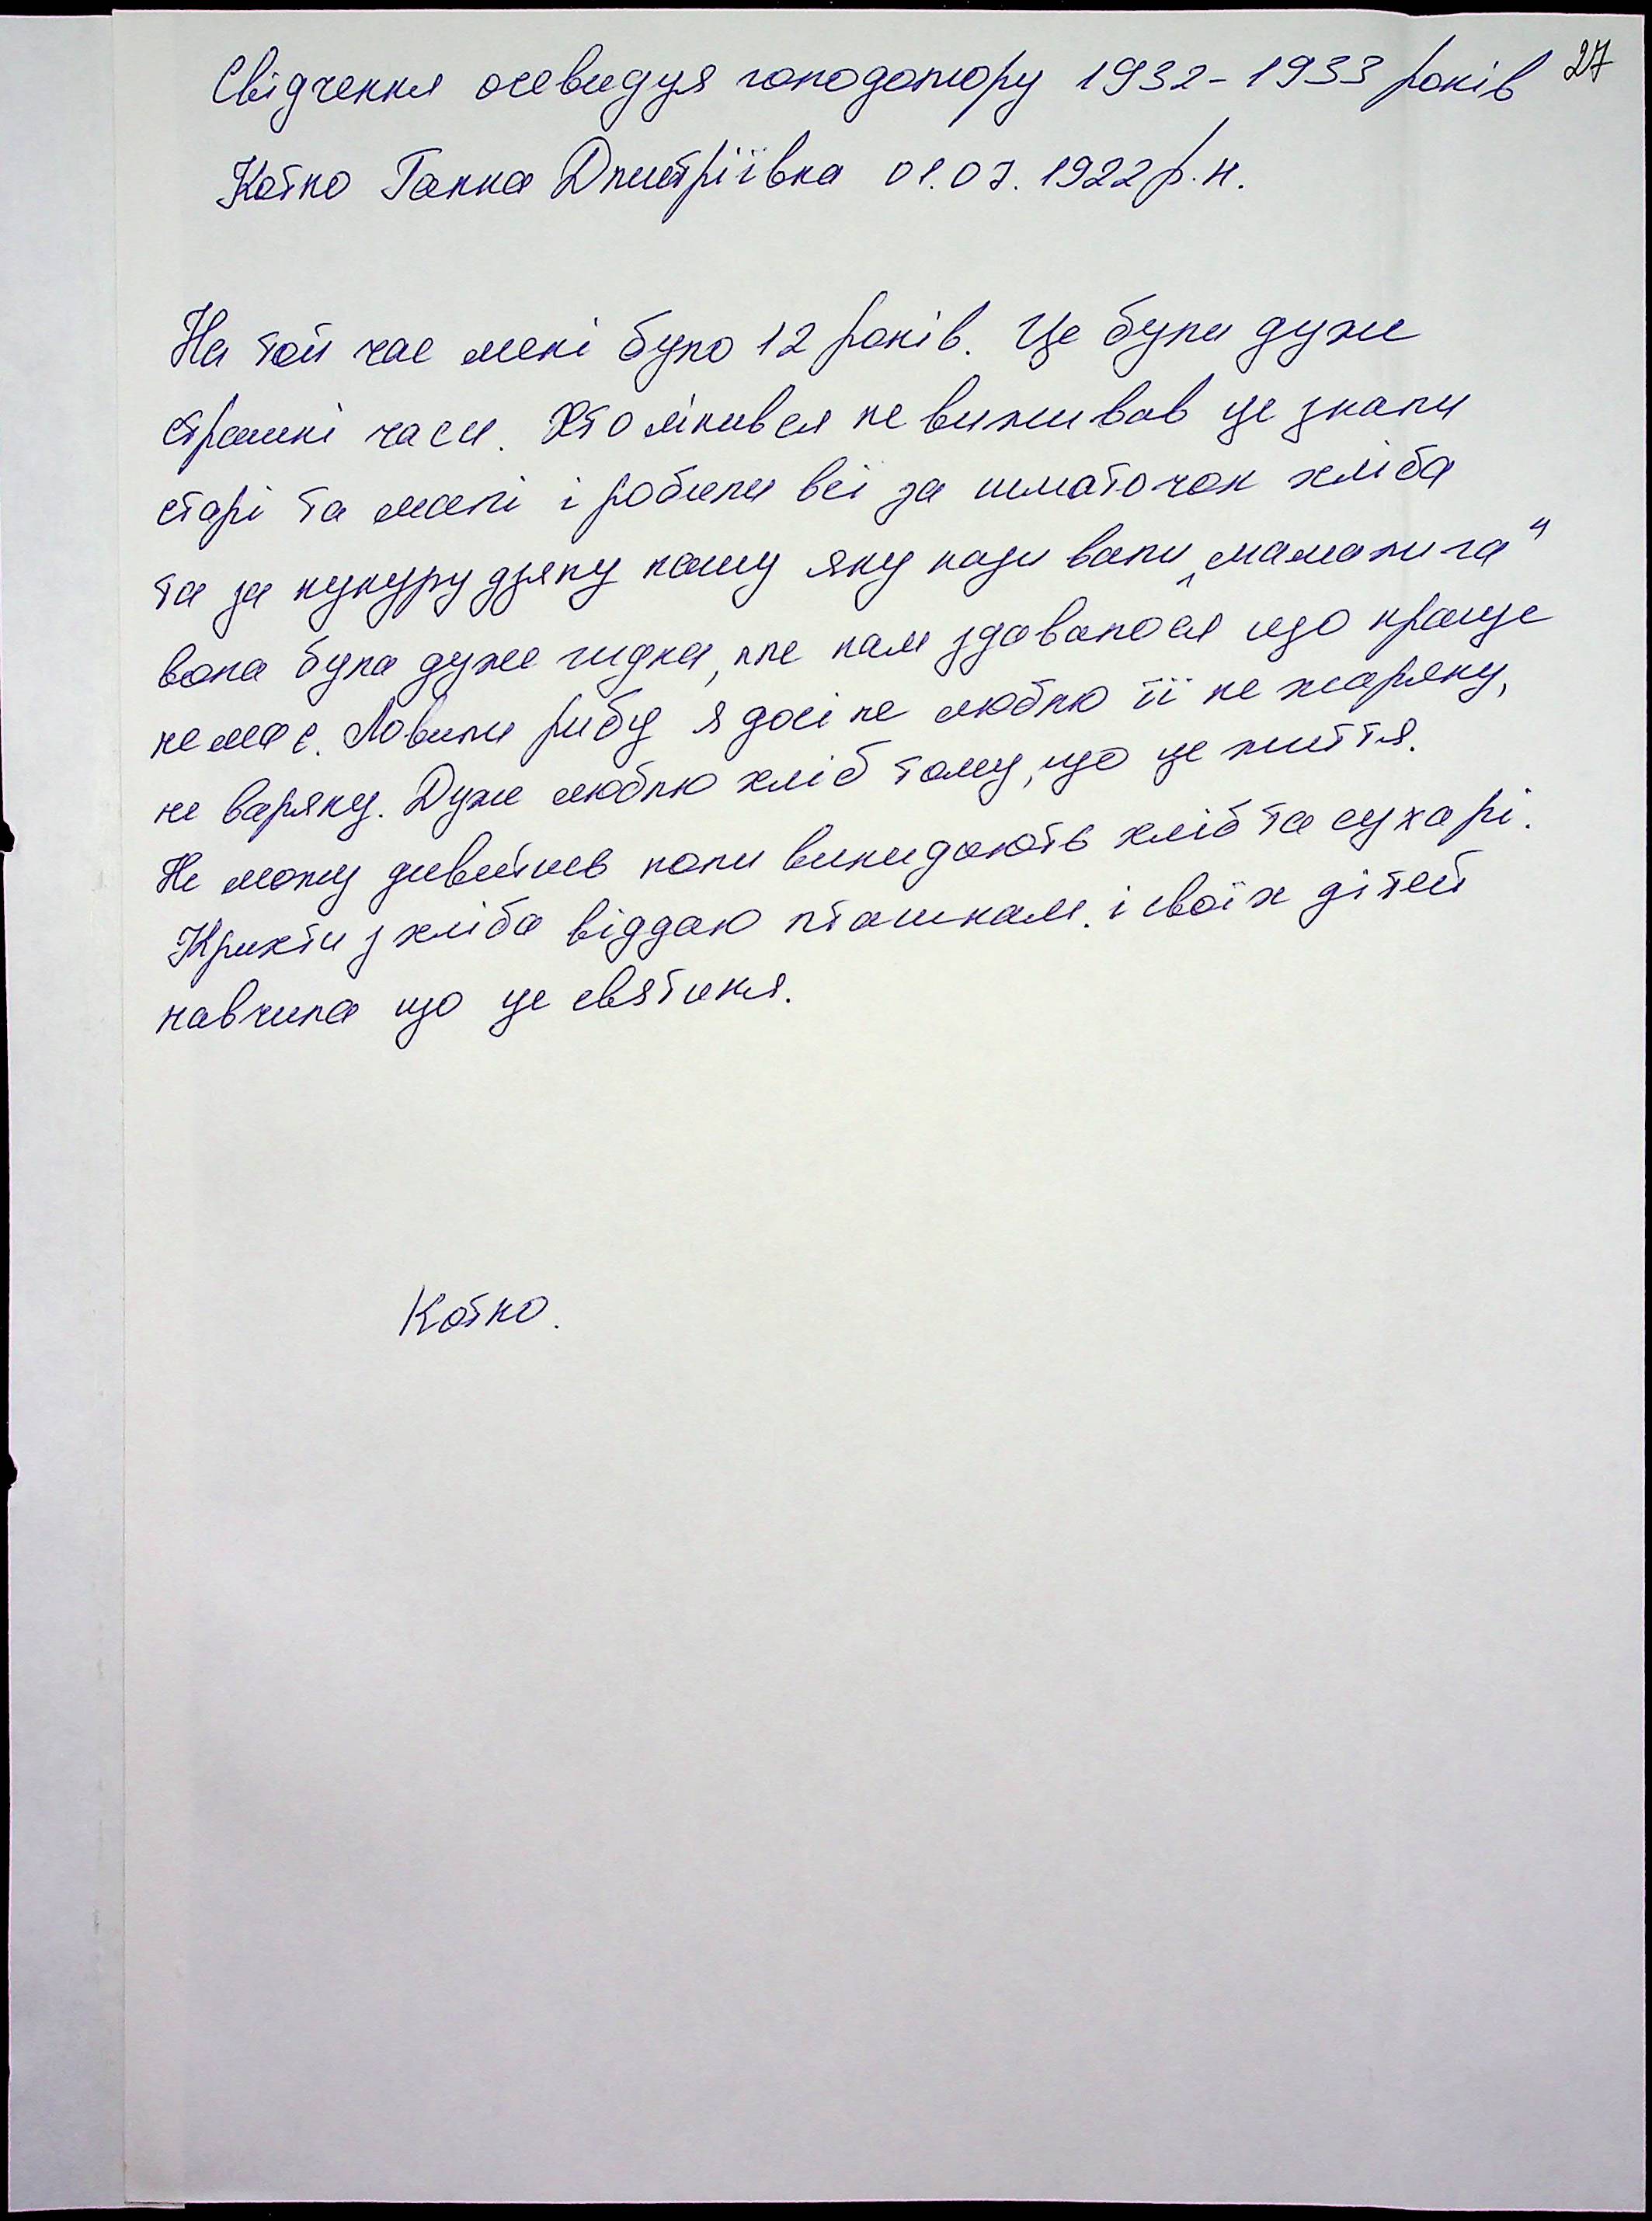 27
Свідчення очевидця голодомору 1932-1933 років
Котко Ганна Дмитріївна 01.07.1922 р.н.
На той час мені було 12 років. Це були дуже
страшні часи. Хто лінився не виживав це знали
старі та малі і робили всі за шматочок хліба
та за кукурудзяну кашу яку називали „мамалига"
вона була дуже гидка, але нам здавалося що краще
немає. Ловили рибу я досі не люблю її не жарену,
не варяну. Дуже люблю хліб тому, що це життя.
Не можу дивитись коли викидають хліб та сухарі.
Крихти з хліба віддаю пташкам. і своїх дітей
навчила що це святиня.
Котко.